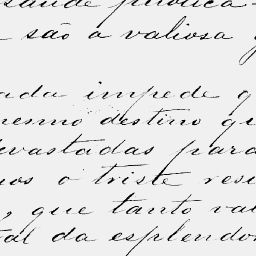 saude publica
são a valiosa
ada impede q
mesmo destino qu
evastadas para
nos o triste resu
, que tanto val
tal da esplendor